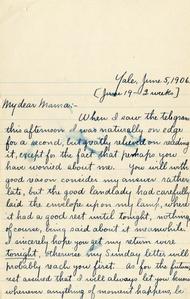 Yale, June 5, 1906
[June 19 - 2 weeks]
My dear Mama:-
When I saw the telegram
this afternoon I was naturally on edge
for a second, but greatly relieved on reading
it, except for the fact that perhaps you
have worried about me. You will with
good reason consider my answer rather
late, but the good landlady had carefully
laid the envelope up on my lamp, where
it had a good rest until tonight, nothing,
of course, being said about it meanwhile.
I sincerely hope you get my return wire
tonight, otherwise my Sunday letter will
probably reach you first. As for the future
rest assured that I will always let you know
whenever anything of moment happens, &